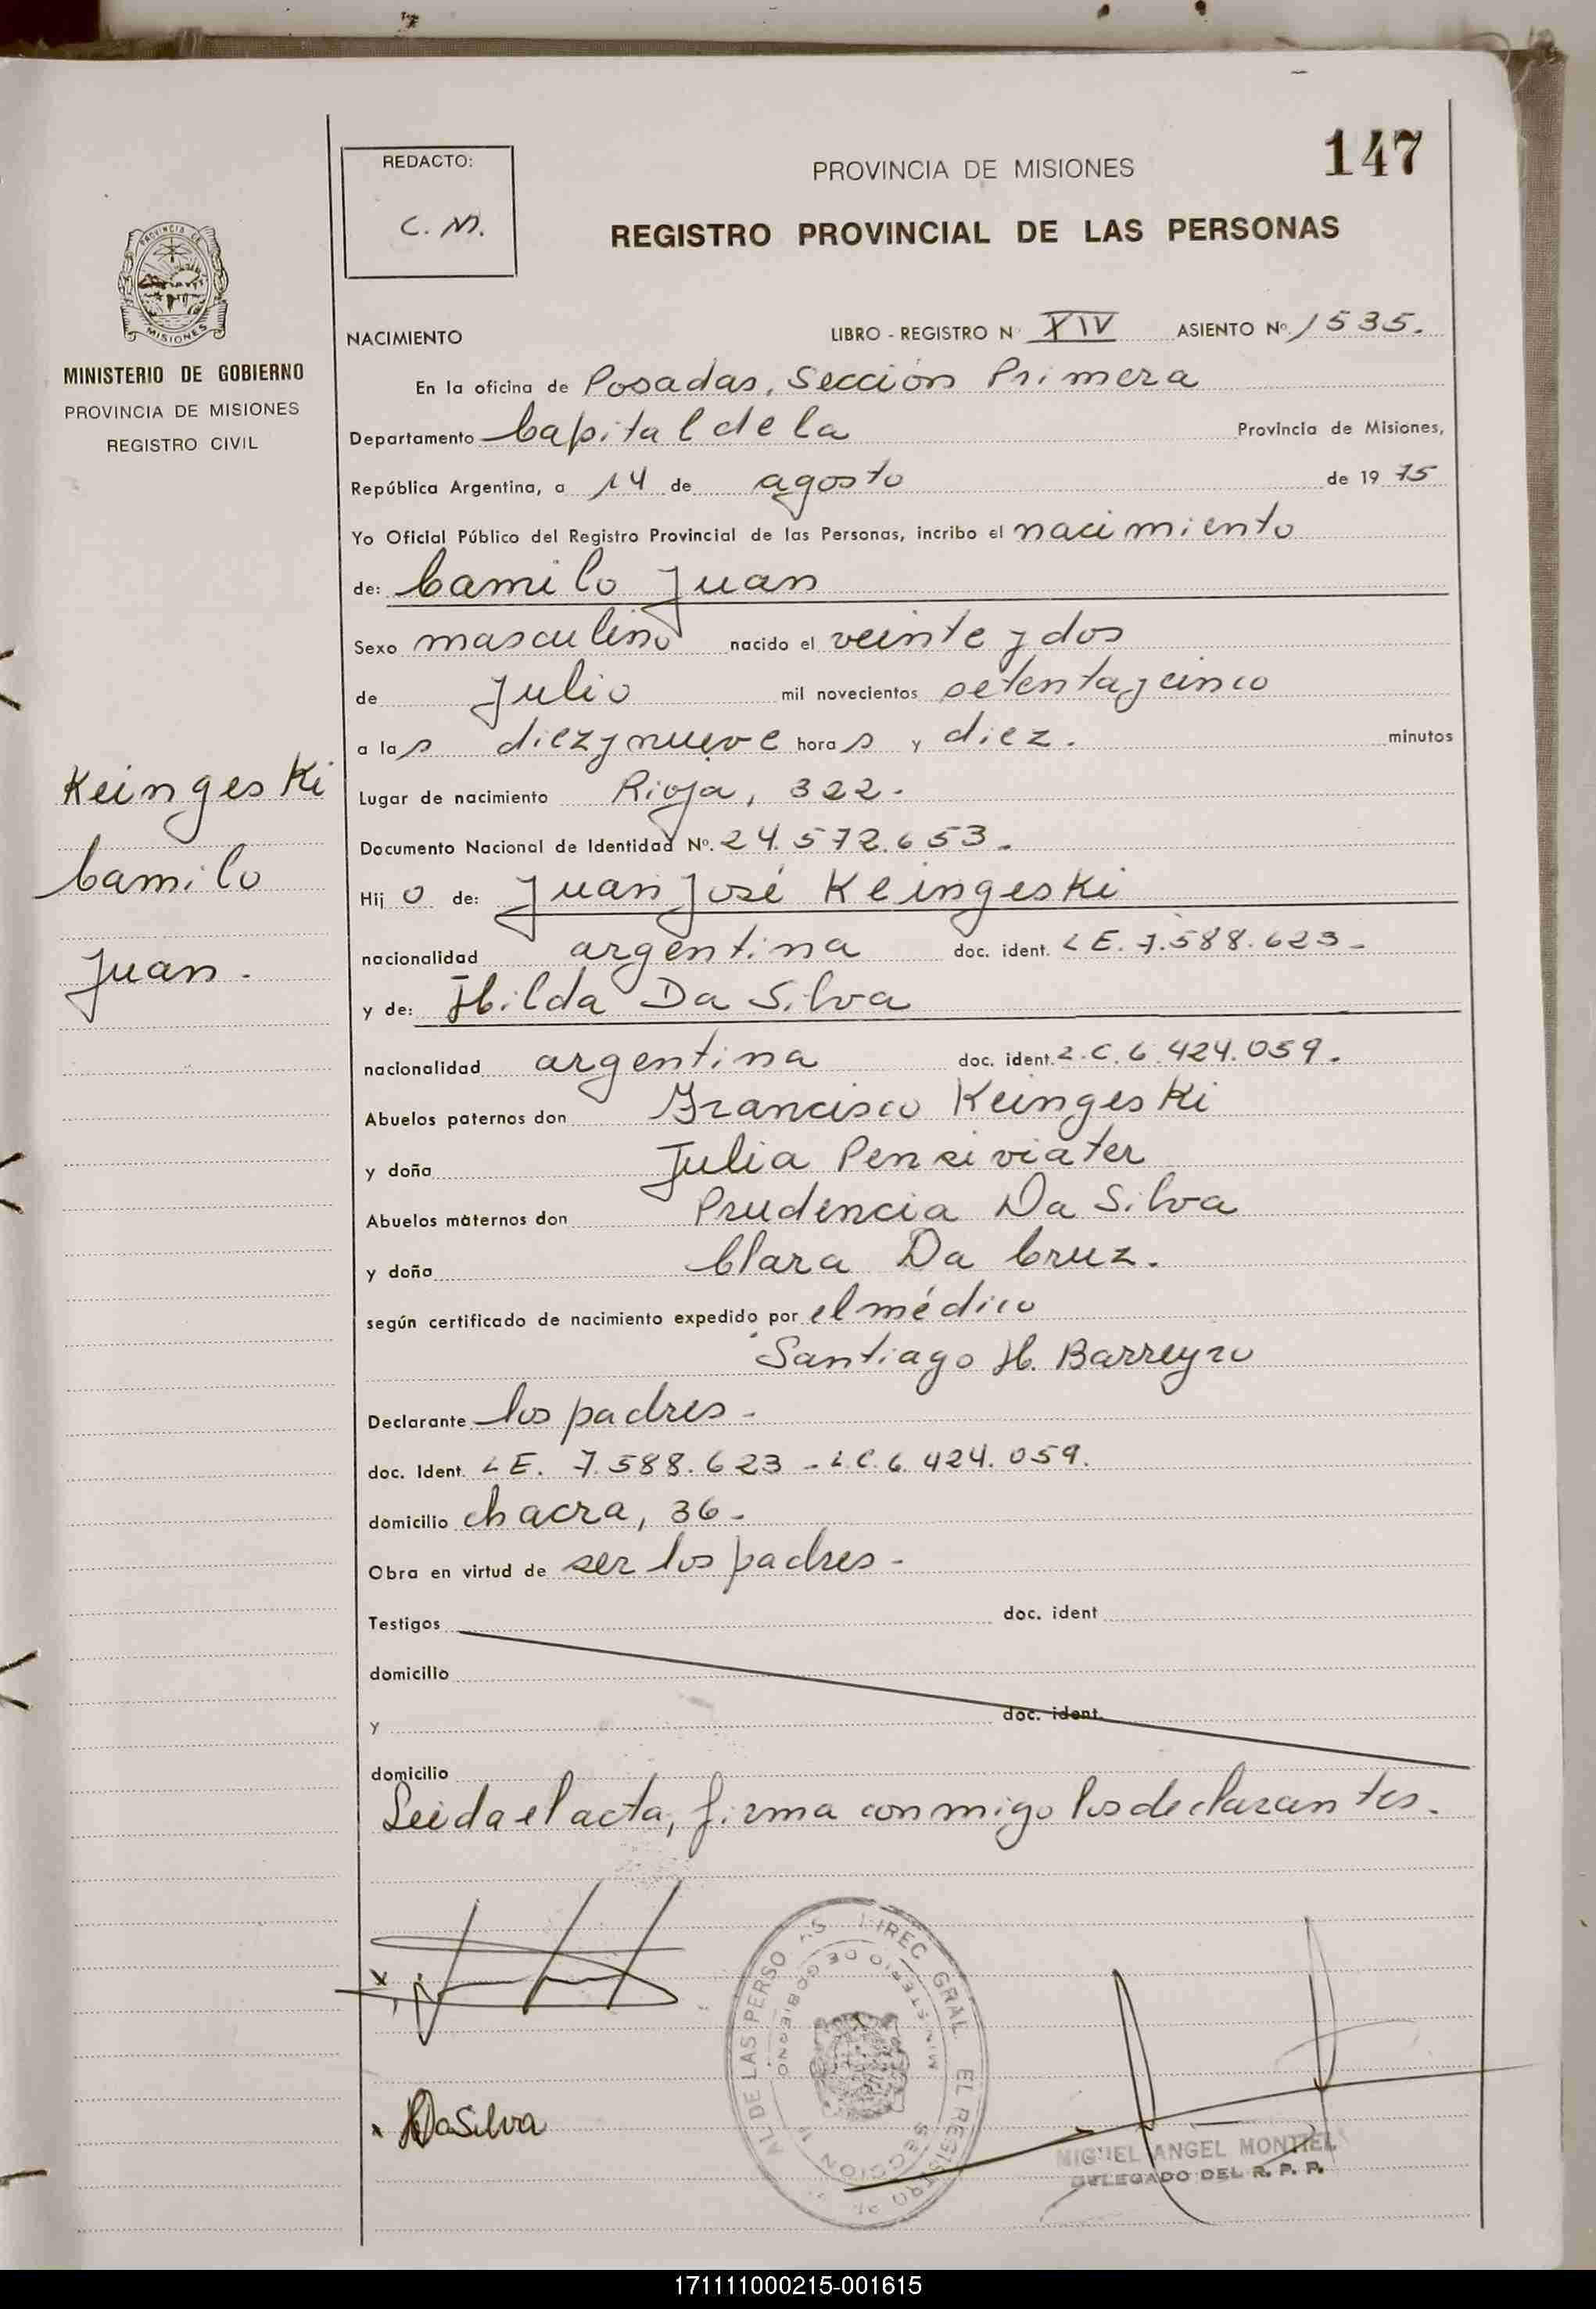 147
REDACTO:
C. M.
PROVINCIA DE MISIONES
REGISTRO PROVINCIAL DE LAS PERSONAS
PROVINCIA DE
MISIONES
MINISTERIO DE GOBIERNO
PROVINCIA DE MISIONES
REGISTRO CIVIL
NACIMIENTO LIBRO - REGISTRO Nº XIV ASIENTO Nº 1535.
En la oficina de Posadas, Sección Primera
Departamento Capital de la Provincia de Misiones,
República Argentina, a 14 de agosto de 1975
Yo Oficial Público del Registro Provincial de las Personas, incribo el nacimiento
de: Camilo Juan
Sexo masculino nacido el veinte y dos
de Julio mil novecientos setenta y cinco
a las diez y nueve horas y diez. minutos
Keingeski
Camilo
Juan.
Lugar de nacimiento Rioja, 322.
Documento Nacional de Identidad Nº. 24.572.653.
Hijo de: Juan José Keingeski
nacionalidad argentina doc. ident. L E. 7.588.623-
y de: Hilda Da Silva
nacionalidad argentina doc. ident. L.C. 6.424.059.
Abuelos paternos don Francisco Keingeski
y doña Julia Penziviater
Abuelos maternos don Prudencia Da Silva
y doña Clara Da Cruz.
según certificado de nacimiento expedido por el médico
Santiago H. Barreyro
Declarante los padres-
doc. Ident. L E. 7.588.623 - L.C. 6.424.059.
domicilio chacra, 36-
Obra en virtud de ser los padres-
Testigos doc. ident
domicilio
y doc. ident.
domicilio
Leida el acta, firma conmigo los declarantes.
HDaSilva
MINISTERIO DE GOBIERNO
MIGUEL ANGEL MONTIEL
DELEGADO DEL R. P. P.
171111000215-001615